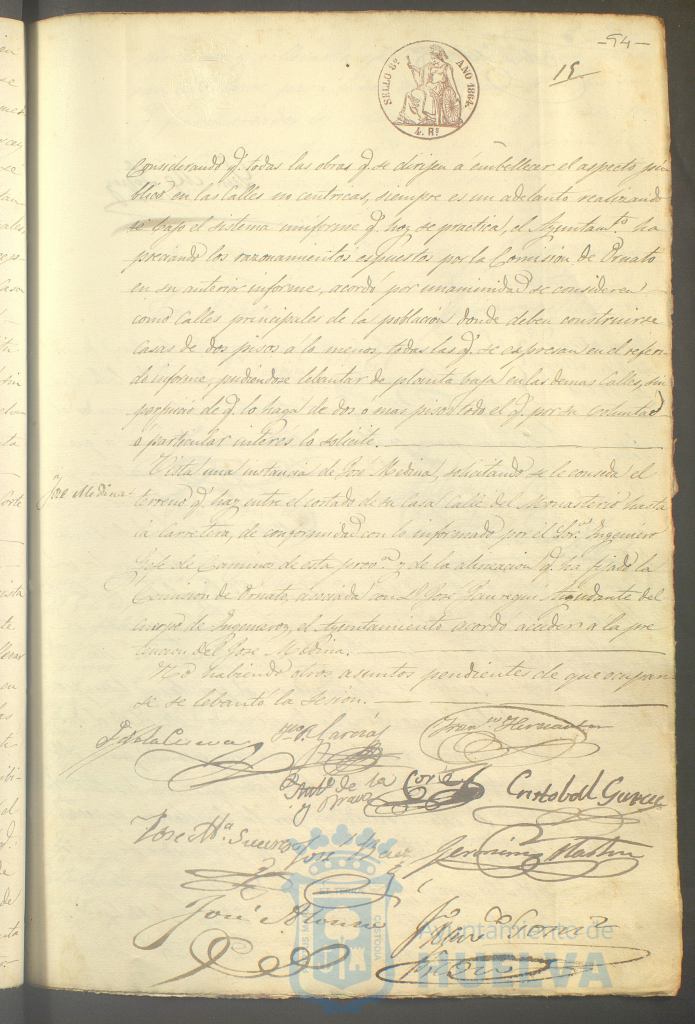 -94-
15
SELLO 8º AÑO 1864.
4. Rs
Considerando q. todas las obras q. se dirijen á embellecer el aspecto pú
blico en las Calles no centricas, siempre es un adelanto realizando
se bajo el sistema uniforme q. hoy se practica, el Ayuntamto. ha
preciando los razonamientos espuestos por la Comision de Ornato
en su anterior informe, acordó por unanimidad se consideren
como Calles principales de la poblacion donde deben construirse
casas de dos pisos á lo menos, todas las q. se espresan en el referi
do informe, pudiendose lebantar de planta baja en las demas Calles, sin
perjuicio de q. lo haga de dos ó mas pisos todo el q. por su voluntad
o particular interés lo solicite.
José Medina
Vista una instancia de José Medina, solicitando se le conceda el
terreno q. hay entre el cortado de su Casa Calle del Monasterio hasta
la Carretera, de conformidad con lo informado por el Sor. Ingeniero
Jefe de Caminos de esta prova. y de la alineacion q. ha fijado la
Comision de Ornato, asociada con Dn. José Ayudante del
cuerpo de Ingenieros, el Ayuntamiento acordó acceder a la pre
tencion del José Medina.
No habiendo otros asuntos pendientes de que ocupar
se se lebantó la sesion.
García Franco Hernandez
de la Corte
y Bravo
Cristobal Garcia
José Ma. Suero José
Geronimo Martin
José Alonso
Gomez
Ayuntamiento de
HUELVA